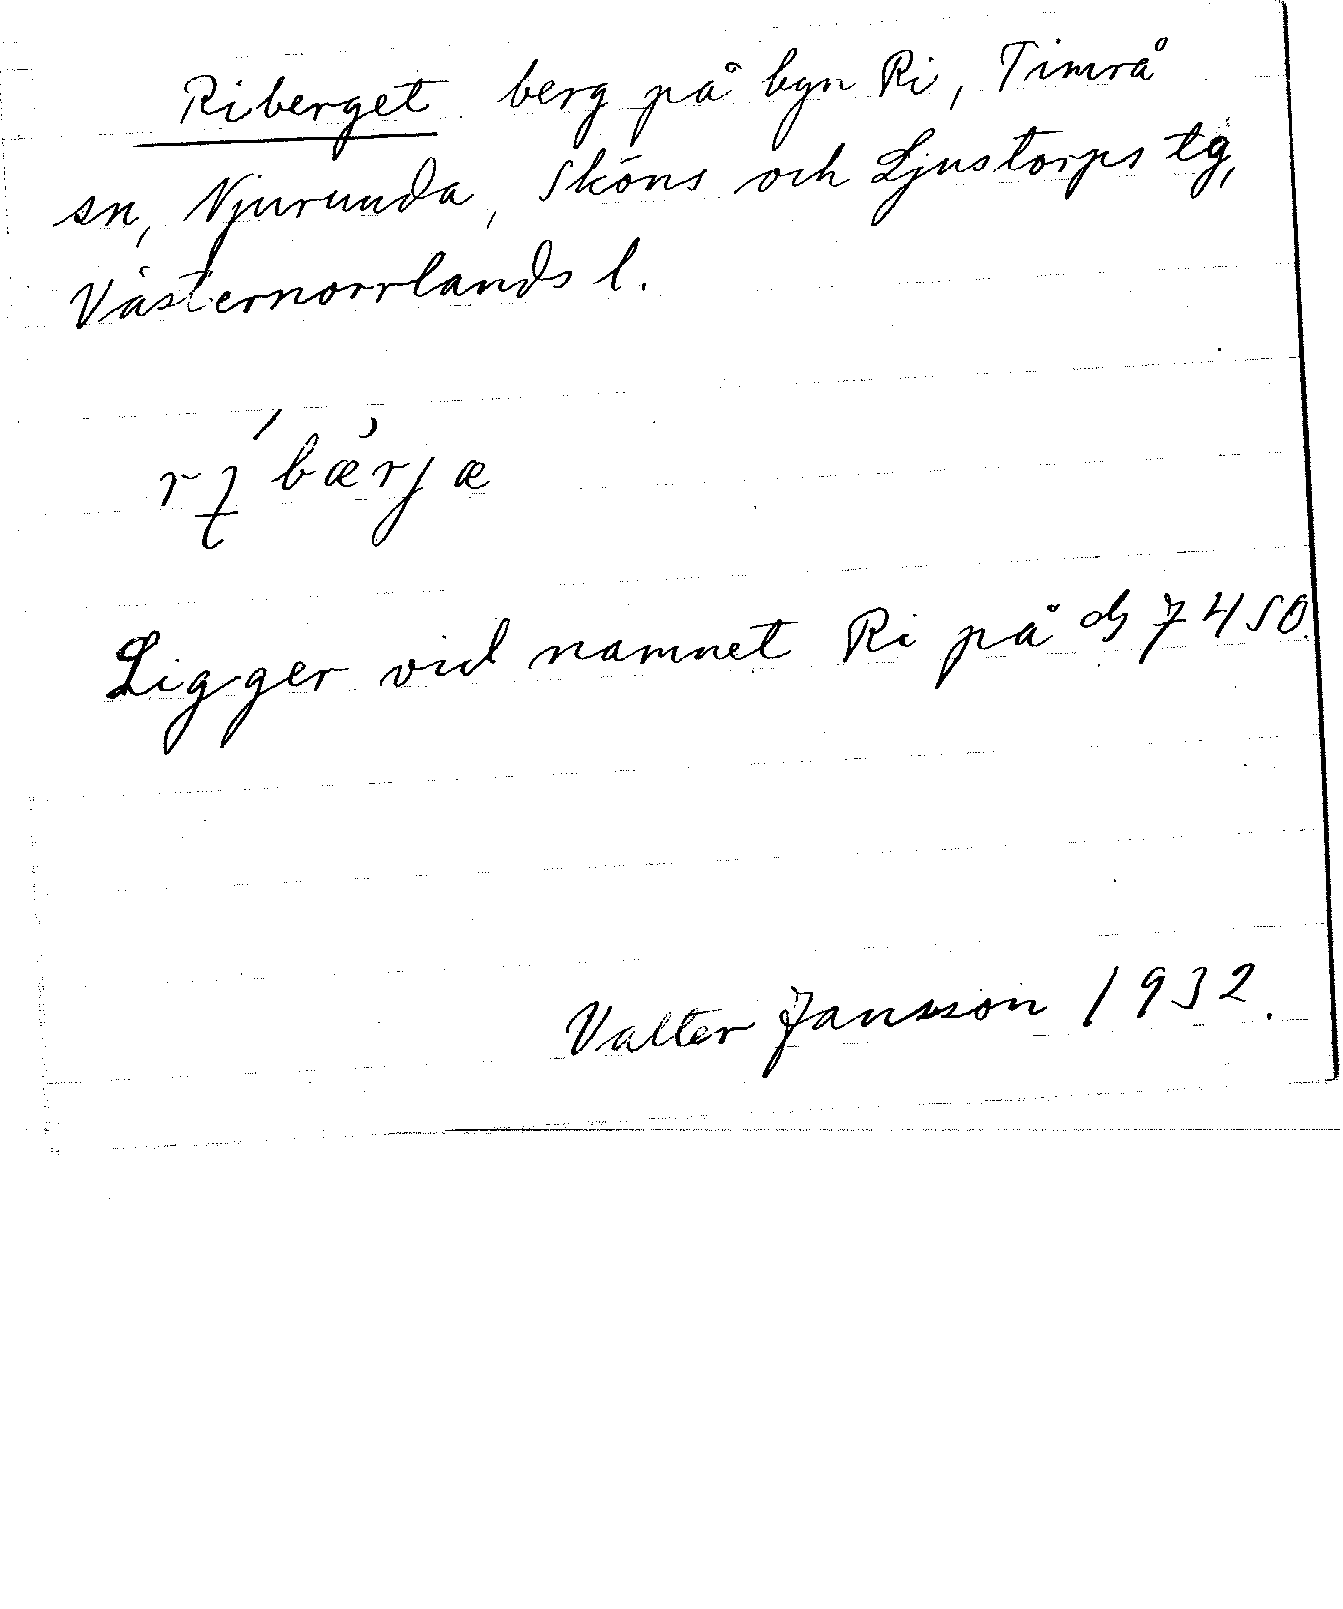 Riberget berg på byn Ri, Timrå
sn, Njurunda, Sköns och Ljustorps tg,
Västernorrlands l.
bærjæ
Ligger vid namnet Ri på 74 SO.
Valter Jansson 1932.